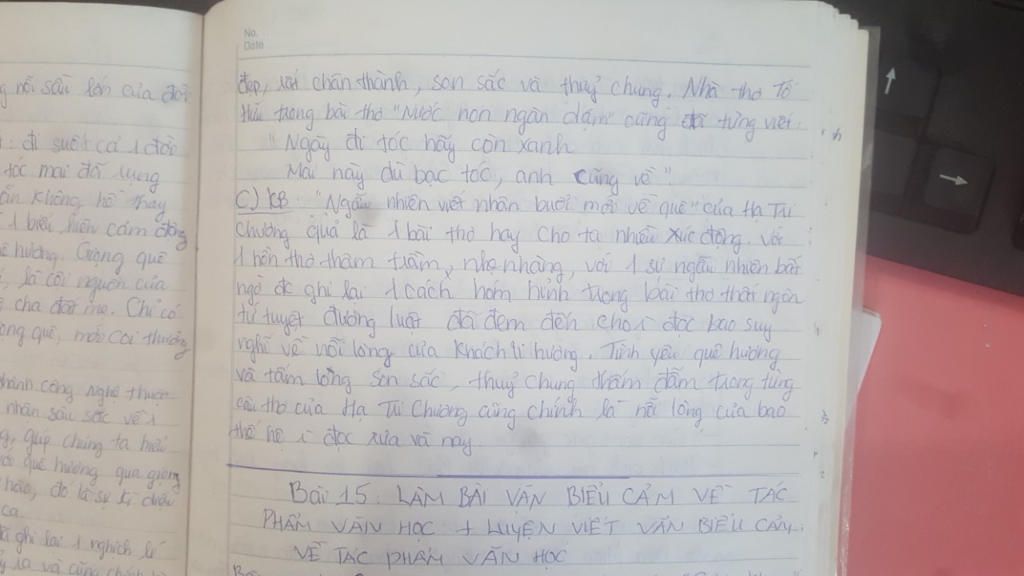 No.
Date
g nỗi sầu lớn của đời
đi suốt cả 1 đời
tóc mai đã rụng
ẫn không hề thay
1 biểu hiện cảm động
ê hương. Giọng quê
, là cội nguồn của
cha đất mẹ. Chỉ có
ng quê, mới coi thường
thành công nghệ thuật
nhân sâu sắc về i
g, giúp chúng ta hiểu
quê hương qua giọng
hào, đó là sự
ca
ghi lại 1 nghịch lí
là và cũng chính
đẹp, rất chân thành, son sắc và thuỷ chung. Nhà thơ Tố
Hữu trong bài thơ "Nước non ngàn dặm" cũng đã từng viết:
"Ngày đi tóc hãy còn xanh
Mai này dù bạc tóc, anh cũng về".
C) KB: "Ngẫu nhiên viết nhân buổi mới về quê" của Hạ Tri
Chương quả là 1 bài thơ hay cho ta nhiều xúc động. Với
1 hồn thơ thâm trầm, nhẹ nhàng, với 1 sự ngẫu nhiên bất
ngờ đc ghi lại 1 cách hóm hỉnh trong bài thơ thất ngôn
tứ tuyệt đường luật đã đem đến cho i đọc bao suy
nghĩ về nỗi lòng của khách li hương. Tình yêu quê hương
và tấm lòng son sắc, thuỷ chung thấm đẫm trong từng
câu thơ của Hạ Tri Chương cũng chính là nỗi lòng của bao
thế hệ i đọc xưa và nay.
Bài 15. LÀM BÀI VĂN BIỂU CẢM VỀ TÁC
PHẨM VĂN HỌC + LUYỆN VIẾT VĂN BIỂU CẢM
VỀ TÁC PHẨM VĂN HỌC